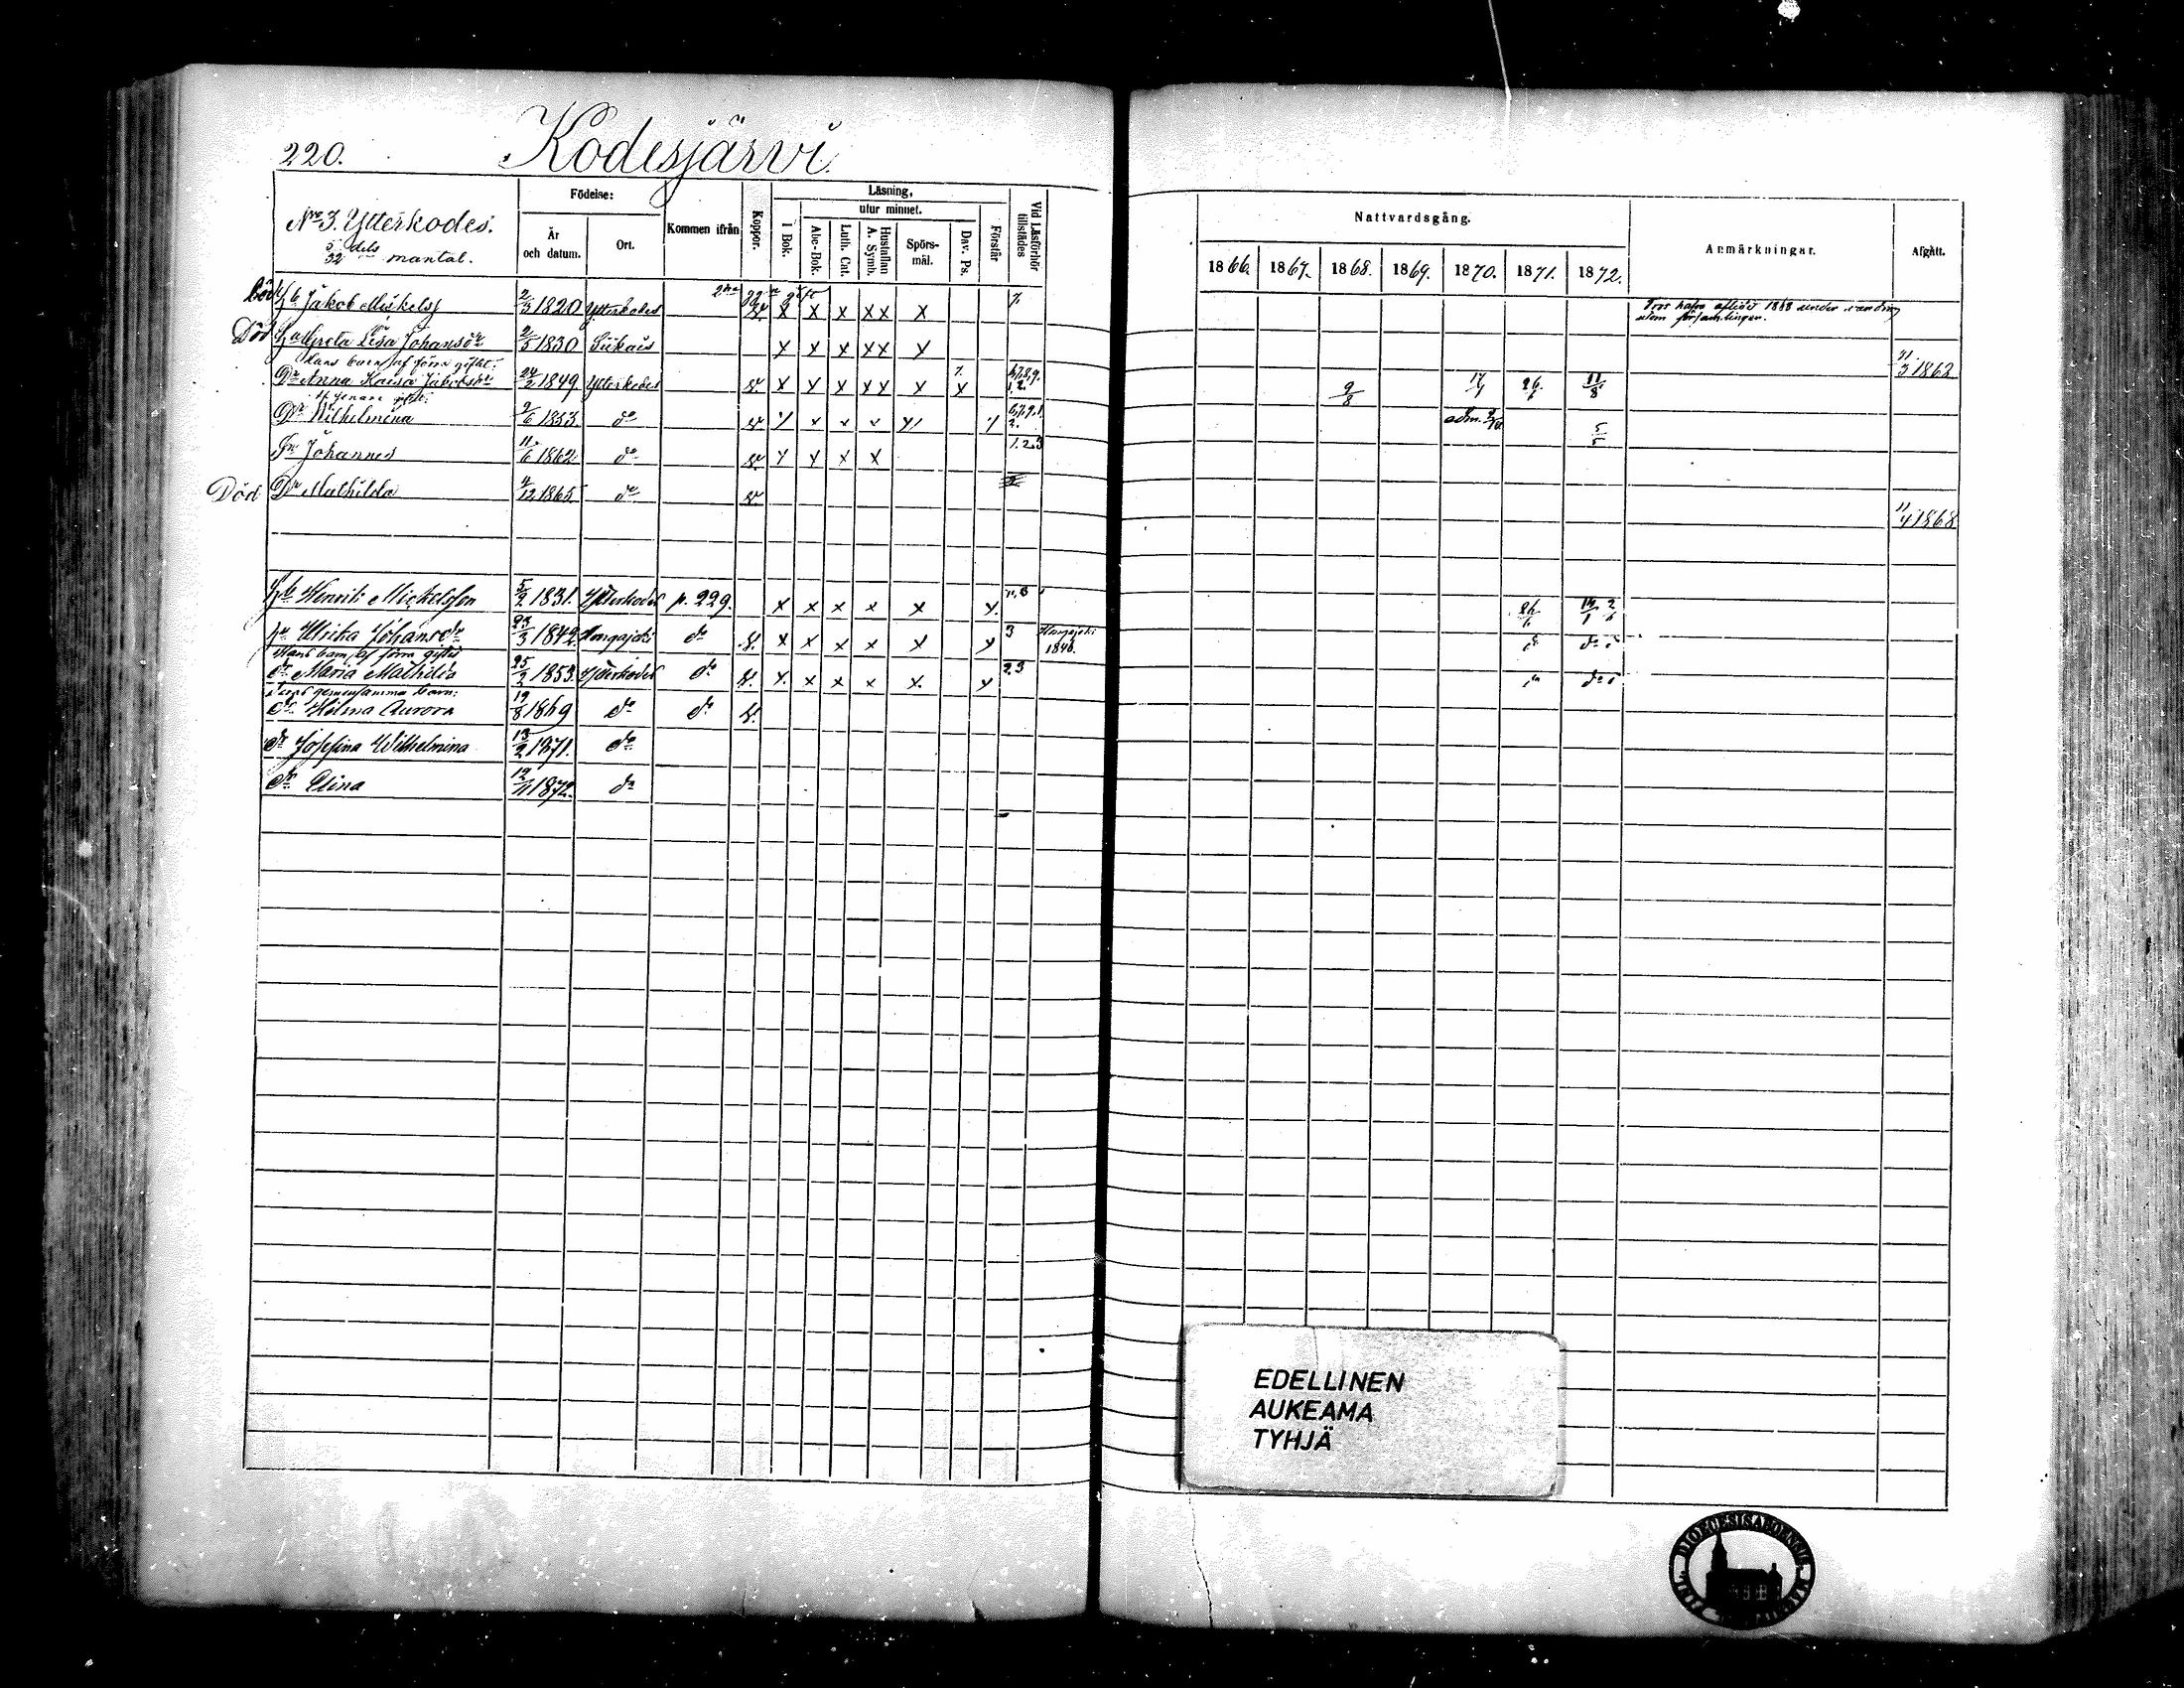 220.
Kodesjärvi.
Nro 3. Ytterkodes.
5/32 dels mantal.
Födelse:
År och datum.
Ort.
Kommen ifrån
Koppor.
Läsning,
i Bok.
utur minnet.
Abc-Bok.
Luth. Cat.
Hustaflan A. Symb.
Spörsmål.
Dav. Ps.
Förstår
Vid Läsförhör tillstädes
Nattvardsgång.
1866. 1867. 1868. 1869. 1870. 1871. 1872.
Anmärkningar.
Afgått.
Jakob Mickelss 2/3 1820 Ytterkodes x x x xx x 7.
Tros hafva aflidit 1868 under vandring
utom församlingen.
Död Greta Lisa Johansdr 2/5 1830 Siikais x x x xx x 21/3 1862
Hans barn af förra giftet:
Dr Anna Kaisa Jakobsdr 24/2 1849 Ytterkodes v. x x x xx x x 9/8 26/6 11/8
af senare gift:
Dr Wilhelmina 2/6 1853. do v. adm. 5/5
Sn Johannes 11/6 1862 do v. x x x x 1.2.3
Död Dr Mathilda 4/12 1865 do v. 11/4 1868
Henrik Mickelsson 5/2 1831. Ytterkodes p. 229. x x x x x x.
Ulrika Johansdr 23/3 1842 Hongajoki do v. x x x x x x 3 Hongajoki
Hans barn af förra giftet
dr Maria Mathilda 25/2 1853. Ytterkodes do v. x. x x x x. x 2.3
Deras gemensamma barn:
dr Hilma Aurora 19/8 1869 do do v.
dr Josefina Wilhelmina 13/2 1871. do
dr Elina 12/11 1872. do
EDELLINEN
AUKEAMA
TYHJÄ